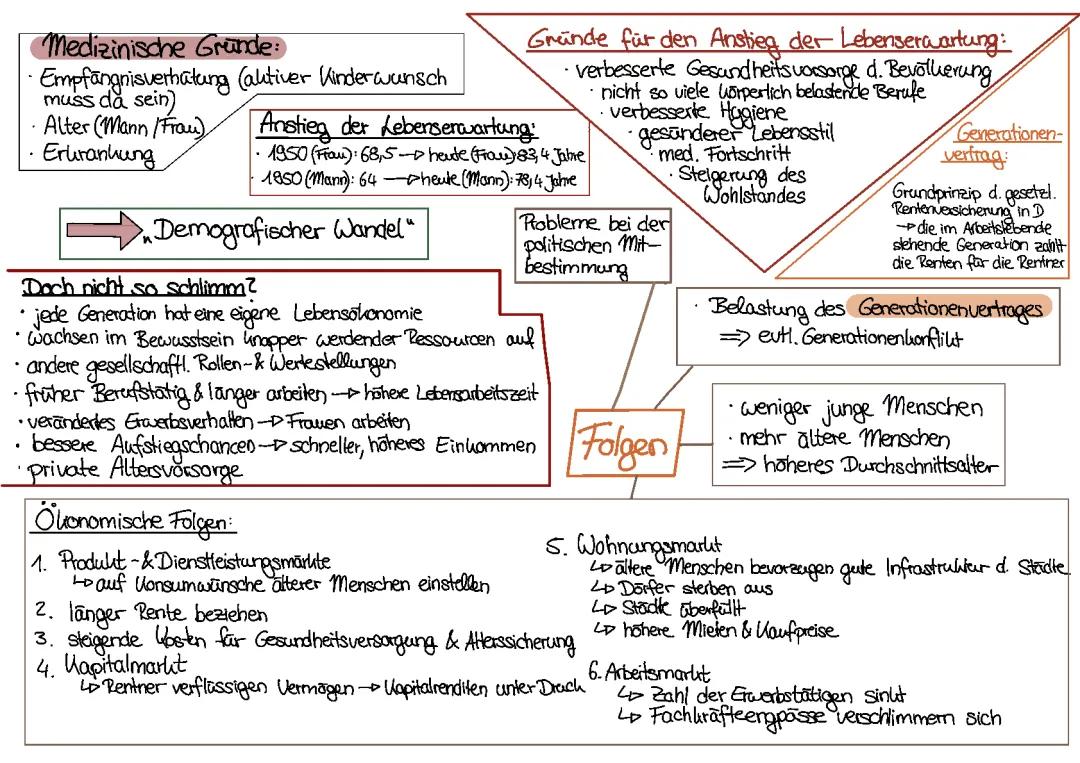 Medizinische Gründe:
· Empfängnisverhütung (aktiver Kinderwunsch
muss da sein)
· Alter (Mann/Frau)
· Erkrankung
Anstieg der Lebenserwartung:
· 1950 (Frau): 68,5 → heute (Frau): 83,4 Jahre
· 1950 (Mann): 64 → heute (Mann): 78,4 Jahre
Gründe für den Anstieg der Lebenserwartung:
· verbesserte Gesundheitsvorsorge d. Bevölkerung
· nicht so viele körperlich belastende Berufe
· verbesserte Hygiene
· gesünderer Lebensstil
· med. Fortschritt
· Steigerung des
Wohlstandes
Generationen-
vertrag:
Grundprinzip d. gesetzl.
Rentenversicherung in D
→ die im Arbeitslebende
stehende Generation zahlt
die Renten für die Rentner
„Demografischer Wandel“
Probleme bei der
politischen Mit-
bestimmung
Doch nicht so schlimm?
· jede Generation hat eine eigene Lebensökonomie
· wachsen im Bewusstsein knapper werdender Ressourcen auf
· andere gesellschaftl. Rollen- & Wertestellungen
· früher Berufstätig & länger arbeiten → höhere Lebensarbeitszeit
· verändertes Erwerbsverhalten → Frauen arbeiten
· bessere Aufstiegschancen → schneller, höheres Einkommen
· private Altersvorsorge
· Belastung des Generationenvertrages
⇒ evtl. Generationenkonflikt
Folgen
· weniger junge Menschen
· mehr ältere Menschen
⇒ höheres Durchschnittsalter
Ökonomische Folgen:
1. Produkt- & Dienstleistungsmärkte
↳ auf Konsumwünsche älterer Menschen einstellen
2. länger Rente beziehen
3. steigende Kosten für Gesundheitsversorgung & Alterssicherung
4. Kapitalmarkt
↳ Rentner verflüssigen Vermögen → Kapitalrenditen unter Druck
5. Wohnungsmarkt
↳ ältere Menschen bevorzugen gute Infrastruktur d. Städte
↳ Dörfer sterben aus
↳ Städte überfüllt
↳ höhere Mieten & Kaufpreise
6. Arbeitsmarkt
↳ Zahl der Erwerbstätigen sinkt
↳ Fachkräfteengpässe verschlimmern sich